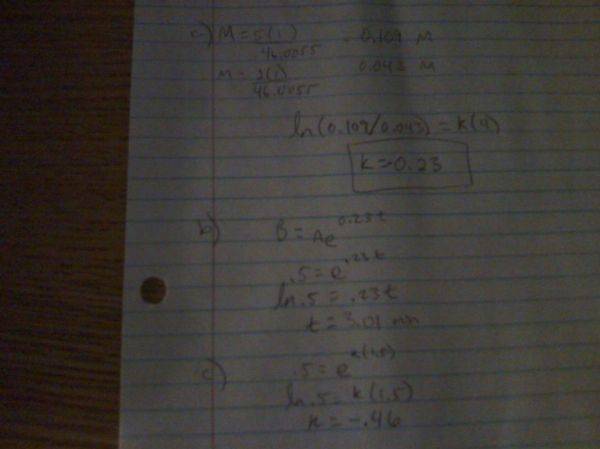 a) M = 5(1)/46.0055 = 0.109 M
M = 2(1)/46.0055 0.043 M
ln(0.109/0.043) = k(4)
k = -0.23
b) B = Ae^0.23t
.5 = e^.23t
ln .5 = .23t
t = 3.01 min
c) .5 = e^k(1.5)
ln .5 = k(1.5)
k = -.46